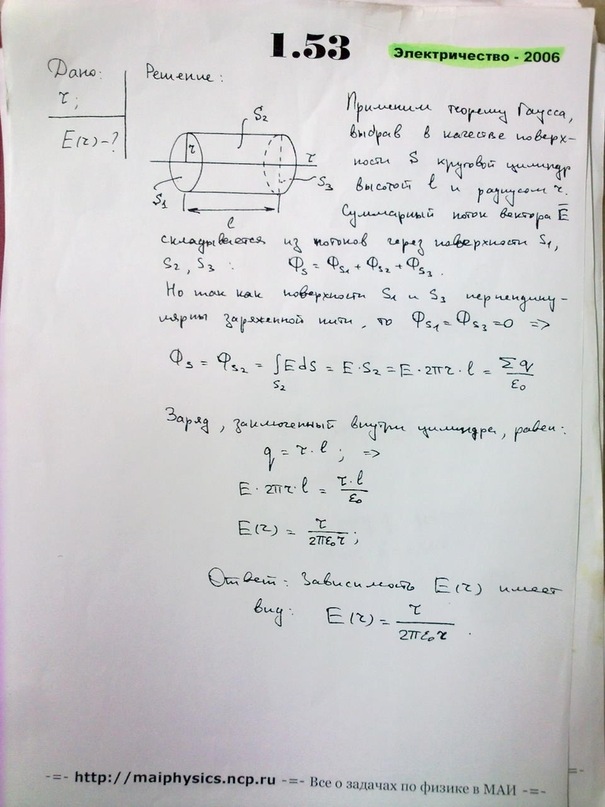 1.53
Электричество - 2006
Дано:
τ;
E(r)-?
Решение:
S₂
r
τ
S₁
S₃
l
Применим теорему Гаусса,
выбрав в качестве поверх-
ности S круговой цилиндр
высотой l и радиусом r.
Суммарный поток вектора E̅
складывается из потоков через поверхности S₁,
S₂, S₃ : Φₛ = Φₛ₁ + Φₛ₂ + Φₛ₃.
Но так как поверхности S₁ и S₃ перпендику-
лярны заряженной нити, то Φₛ₁ = Φₛ₃ = 0 =>
Φₛ = Φₛ₂ = ∫_S₂ E dS = E · S₂ = E · 2πr · l = Σq/ε₀
Заряд, заключенный внутри цилиндра, равен:
q = τ · l ; =>
E · 2πr · l = τ · l/ε₀
E(r) = τ/2πε₀r ;
Ответ: Зависимость E(r) имеет
вид: E(r) = τ/2πε₀r .
-=- http://maiphysics.ncp.ru -=- Все о задачах по физике в МАИ -=-